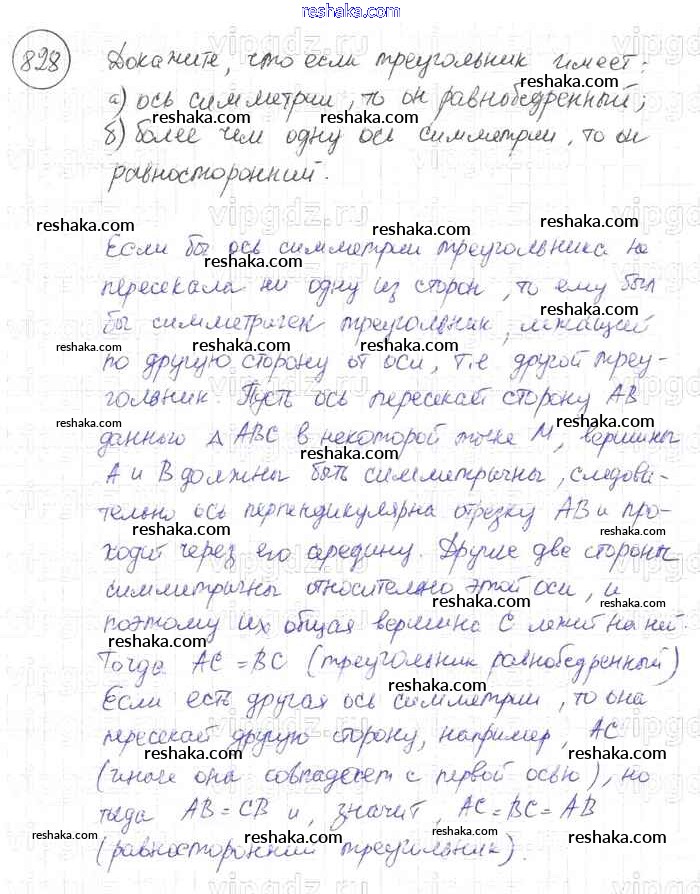 reshaka.com
828 Докажите, что если треугольник имеет:
reshaka.com
а) ось симметрии, то он равнобедренный;
reshaka.com
б) более чем одну ось симметрии, то он
reshaka.com
равносторонний.
reshaka.com reshaka.com reshaka.com
vipgdz.ru vipgdz.ru
Если бы ось симметрии треугольника не
reshaka.com
пересекала ни одну из сторон, то ему был
reshaka.com
бы симметричен треугольник, лежащий
reshaka.com reshaka.com
по другую сторону от оси, т.е другой треу-
reshaka.com
гольник. Пусть ось пересекает сторону AB
reshaka.com reshaka.com
данного Δ ABC в некоторой точке M, вершины
reshaka.com
A и B должны быть симметричны, следова-
reshaka.com reshaka.com
тельно ось перпендикулярна отрезку AB и про-
reshaka.com reshaka.com
ходит через его середину. Другие две стороны
reshaka.com
симметричны относительно этой оси, и
reshaka.com
поэтому их общая вершина C лежит на ней.
reshaka.com reshaka.com
Тогда AC = BC (треугольник равнобедренный)
reshaka.com
Если есть другая ось симметрии, то она
reshaka.com reshaka.com
пересекает другую сторону, например, AC
reshaka.com reshaka.com
(иначе она совпадает с первой осью), но
reshaka.com
тогда AB = CB и, значит, AC = BC = AB
reshaka.com reshaka.com reshaka.com
(равносторонний треугольник).
reshaka.com